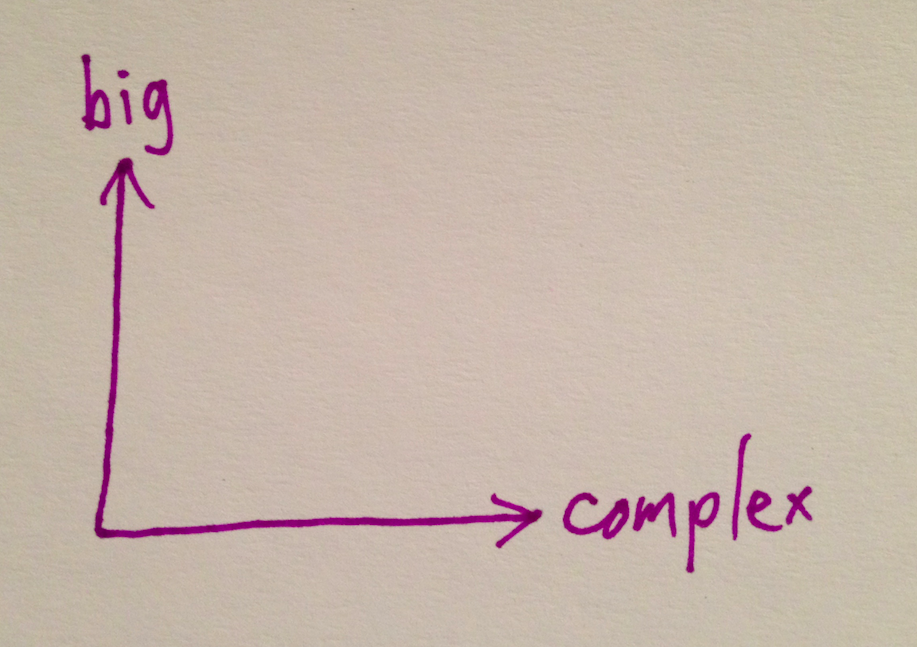 big
complex